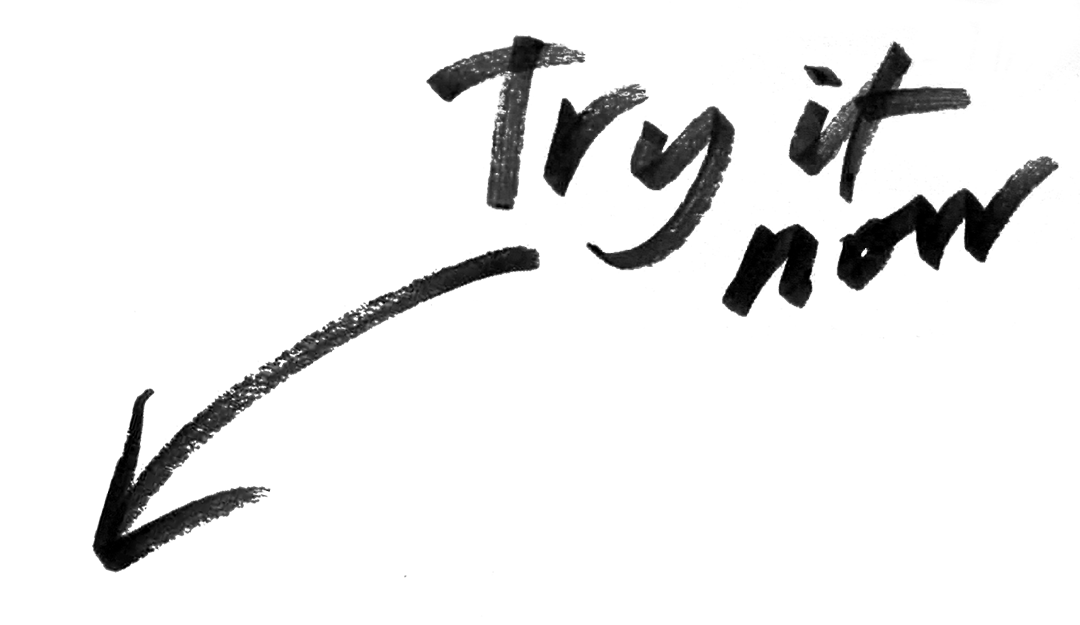 Try it
now